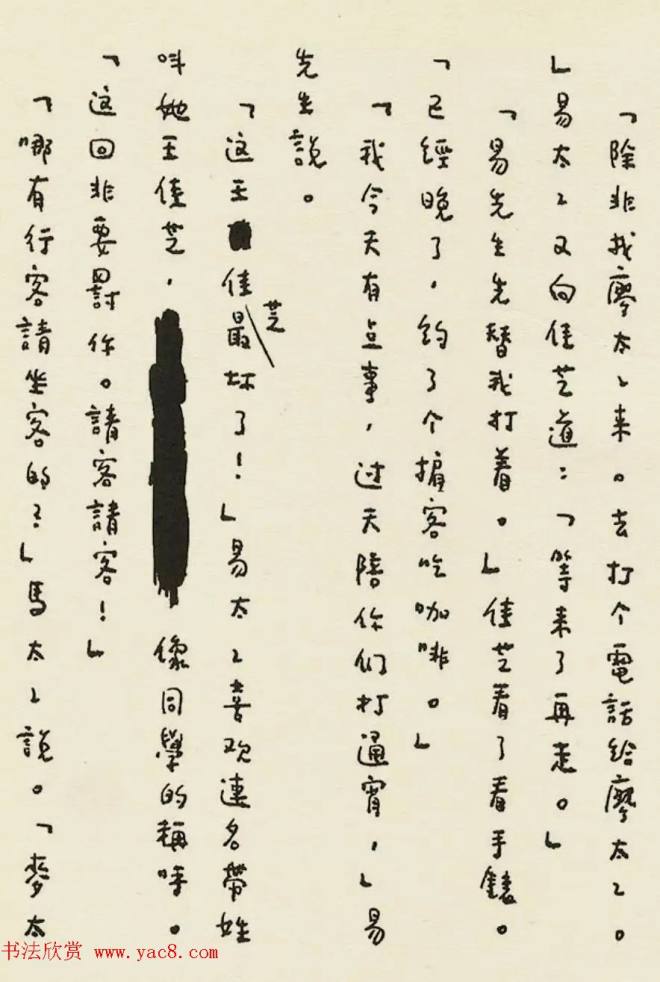 「除非找廖太々来。去打个電話給廖太々。
」易太々又向佳芝道：「等来了再走。」
「易先生先替我打着。」佳芝看了看手錶。
「已經晚了，約了个掮客吃咖啡。」
「我今天有点事，过天陪你们打通宵，」易
先生說。
「这王佳芝最坏了！」易太々喜欢連名帶姓
叫她王佳芝，像同學的稱呼。
「这回非要罰你。請客請客！」
「哪有行客請坐客的？」馬太々說。「麥太
书法欣赏 www.yac8.com